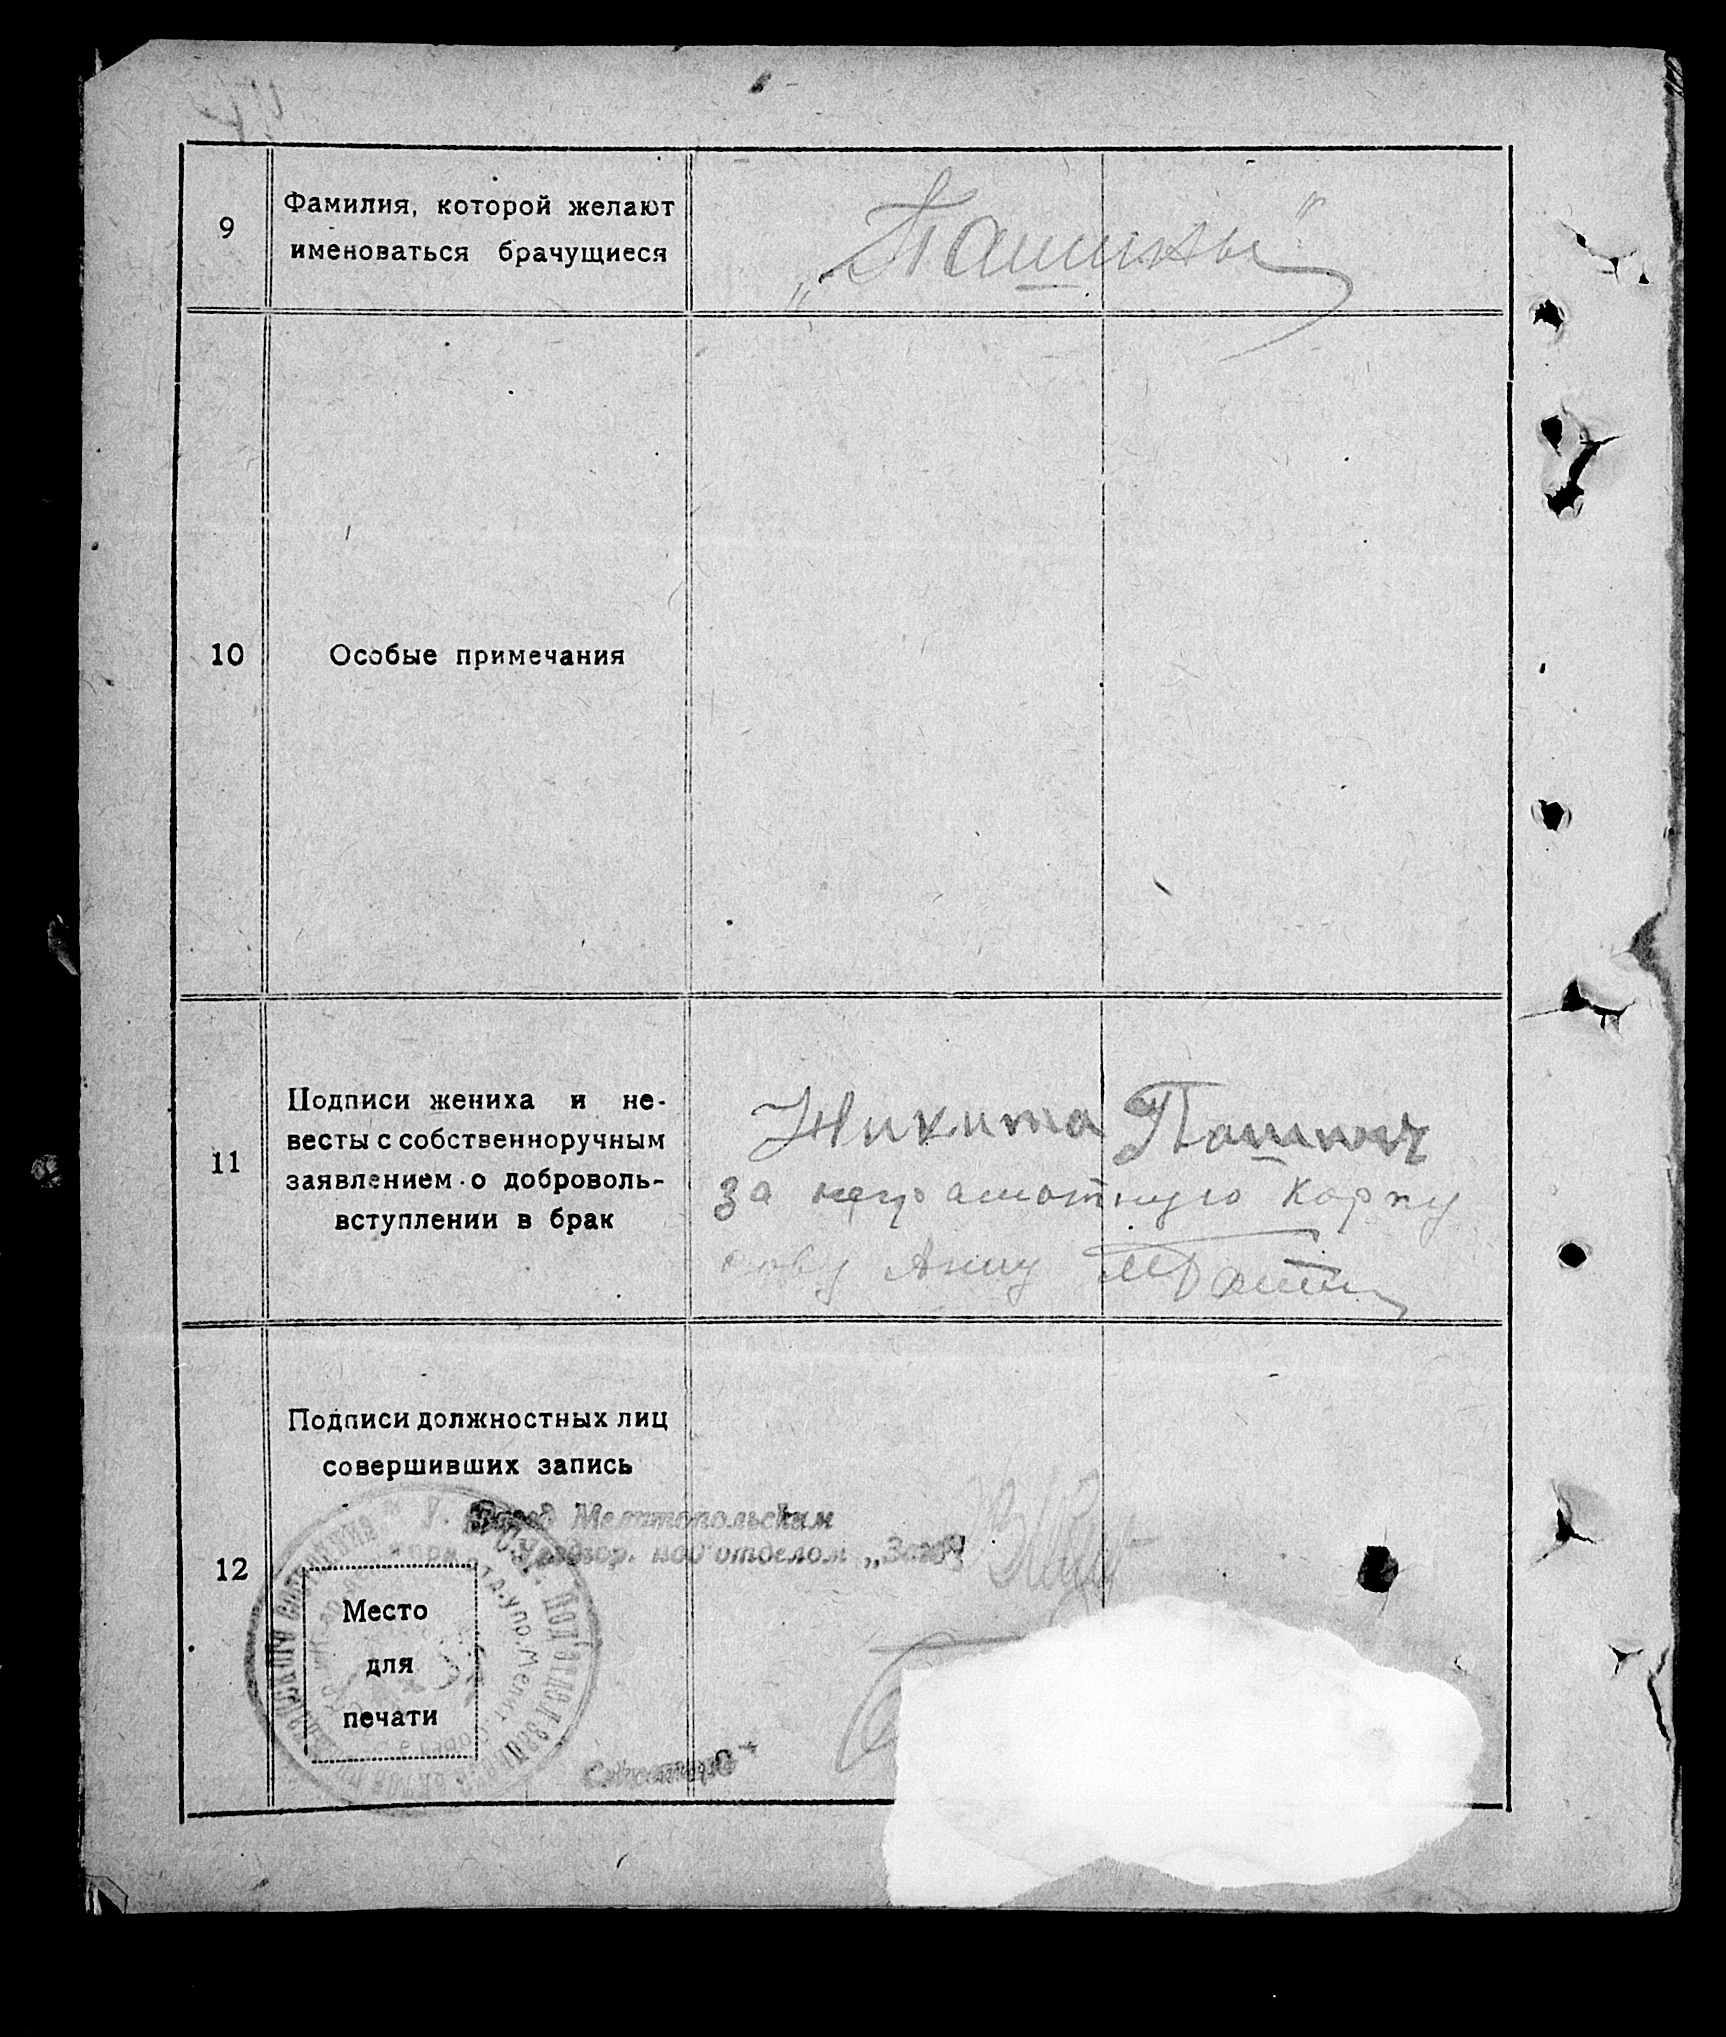 9
Фамилия, которой желают
именоваться брачущиеся
„Пашины"
10
Особые примечания
11
Подписи жениха и не-
весты с собственноручным
заявлением о доброволь-
вступлении в брак
Никита Пашин
за неграмотную Карпу
сову Анну
12
Подписи должностных лиц
совершивших запись
Мелитопольским
под'отделом „Загс"
Место
для
печати
Секретарь